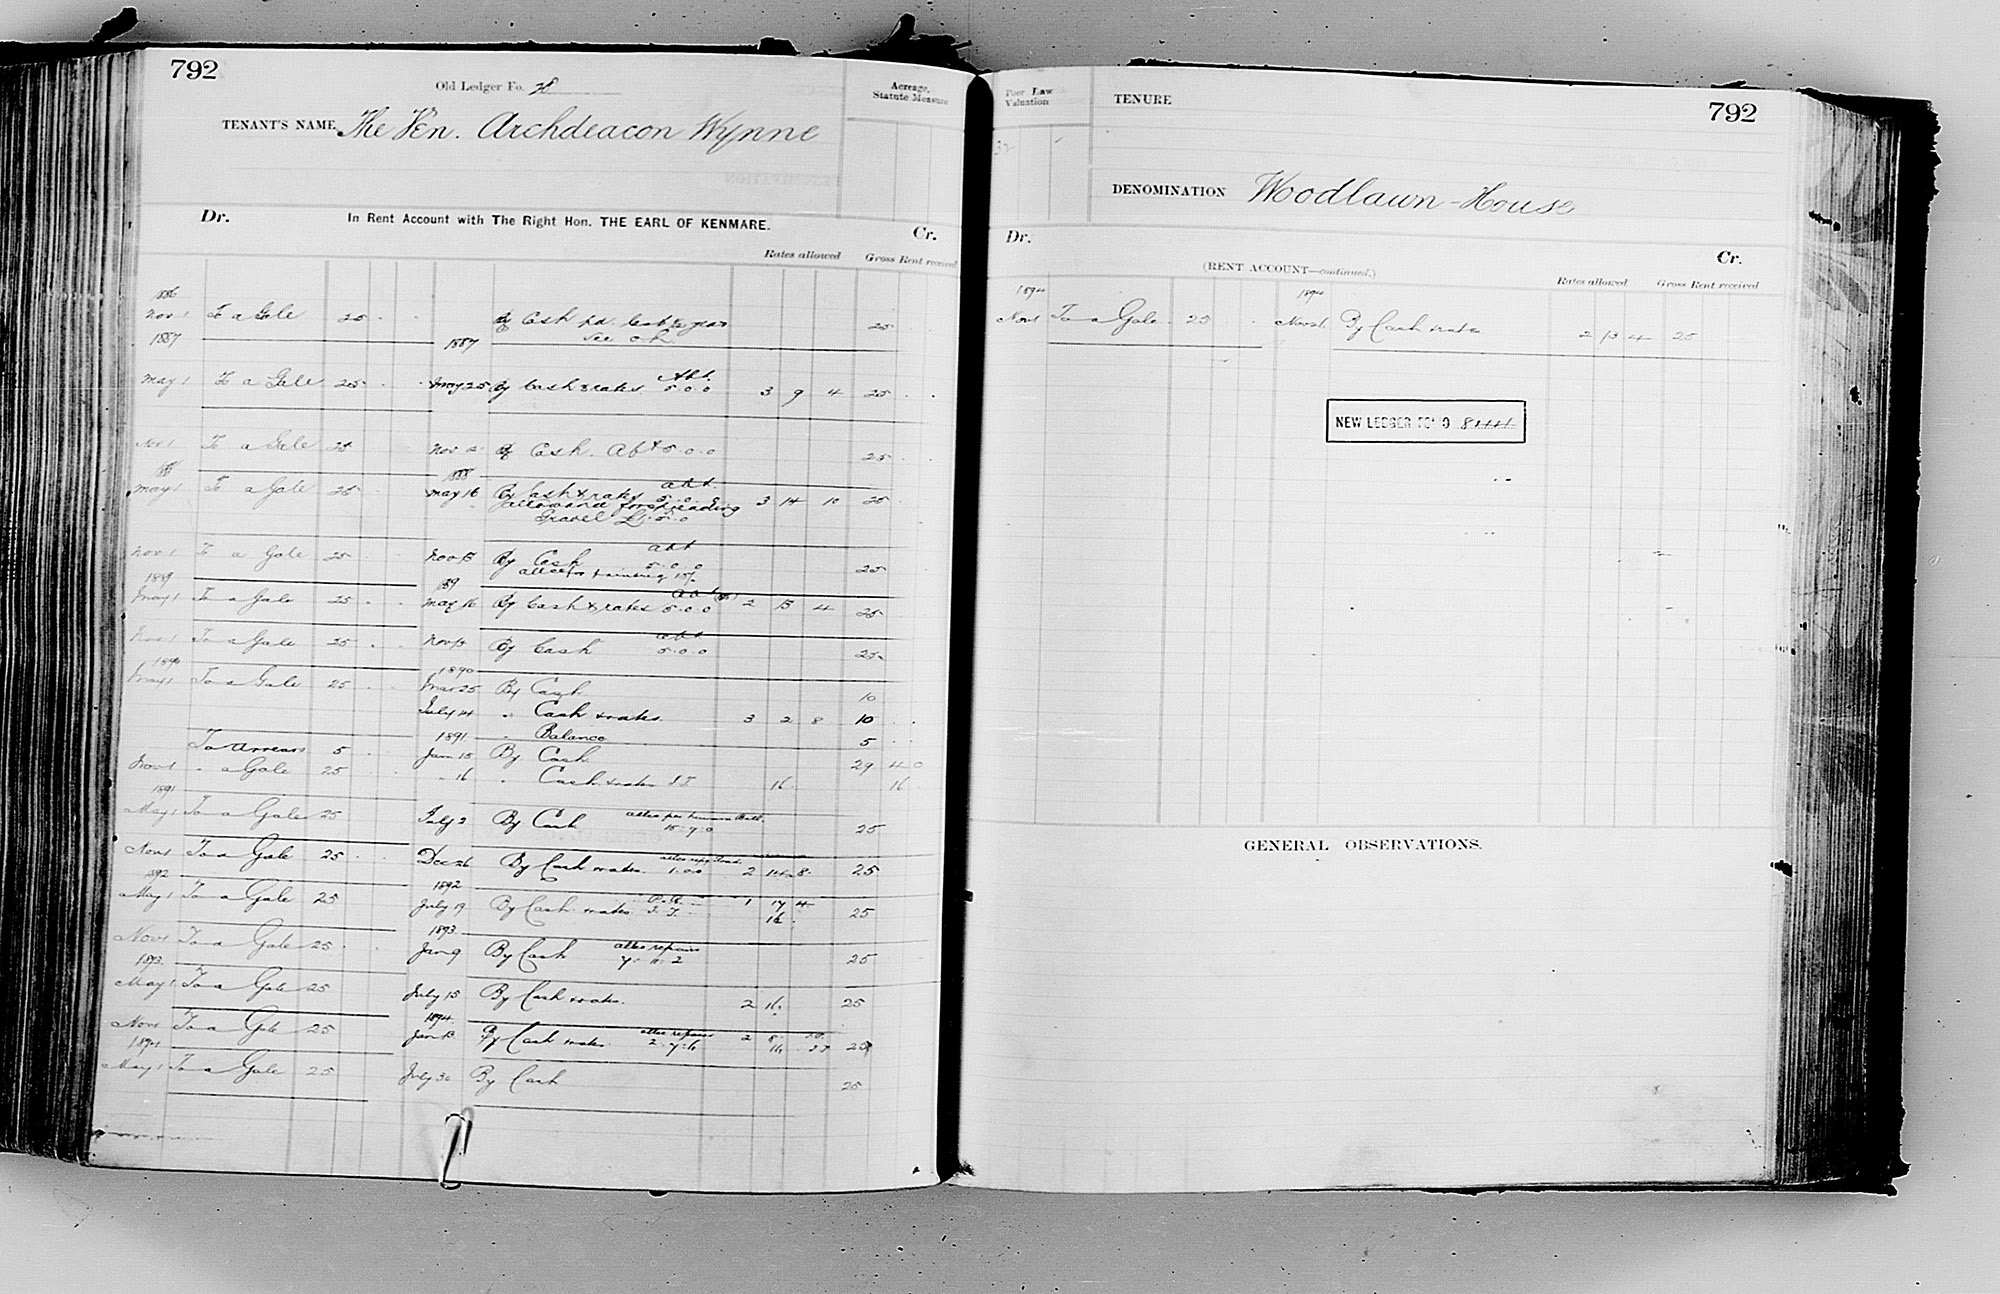 792
Old Ledger Fo. 28
TENANT'S NAME The Ven. Archdeacon Wynne
Acreage,
Statute Measure
Dr. In Rent Account with The Right Hon. THE EARL OF KENMARE. Cr.
Rates allowed Gross Rent received
1886
Nov 1 To a Gale 25 By Cash pd. last ½ year 25
See O.L.
1887 1887
May 1 To a Gale 25 May 25 By Cash & rates Abt. 5.0.0 3 9 4 25
Nov 1 To a Gale 25 Nov By Cash. Abt 5.0.0 25
1888 1888
May 1 To a Gale 25 May 16 By Cash & rates abt. 5.0.0 3 14 10 25
allowance for spreading
Gravel
Nov 1 To a Gale 25 Nov 15 By Cash abt 5.0.0 25
1889 89
May 1 To a Gale 25 May 16 By Cash & rates abt 5.0.0 2 15 4 25
Nov 1 To a Gale 25 Nov 15 By Cash abt 5.0.0 25
1890 1890
May 1 To a Gale 25 Mar 25 By Cash 10
July 14 " Cash & rates 3 2 8 10
1891 " Balance 5
To Arrears 5 Jan 15 By Cash 29 4 0
Nov 1 " a Gale 25 " 16 " Cash & rates I.T. 16 16
1891
May 1 To a Gale 25 July 2 By Cash 15.7.0 25
Nov 1 To a Gale 25 Dec 26 By Cash & rates 1.0.0 2 14 8 25
1892 1892
May 1 To a Gale 25 July 19 By Cash & rates I.T. 1 17 4 25
16
1893
Nov 1 To a Gale 25 Jan 9 By Cash allce repairs 7.11.2 25
1893
May 1 To a Gale 25 July 15 By Cash & rates. 2 16 25
1894
Nov 1 To a Gale 25 Jan 13 By Cash & rates allce repairs 2.7.6 2 8 25
16
1894
May 1 To a Gale 25 July 30 By Cash 25
Poor Law
Valuation
TENURE
792
DENOMINATION Woodlawn House
Dr. Cr.
(RENT ACCOUNT—continued.)
Rates allowed Gross Rent received
1894 1894
Nov 1 To a Gale 25 By Cash & rates 2 13 4 25
NEW LEDGER FO
GENERAL OBSERVATIONS.